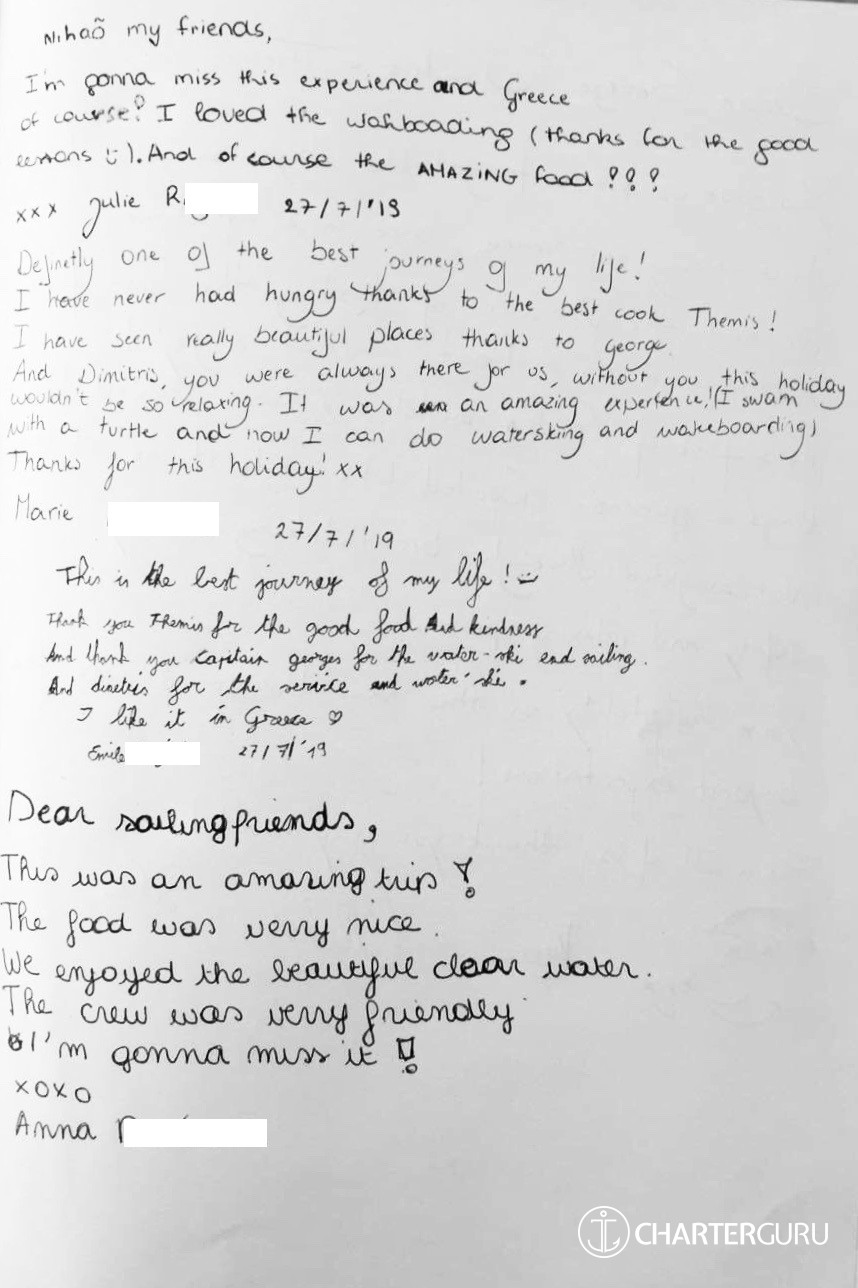 Nihaõ my friends,
I'm gonna miss this experience and Greece
of course! I loved the wakboading (thanks for the good
lessons :). And of course the AMAZING food !!!
xxx Julie R 27/7/'19
Definetly one of the best journeys of my life!
I have never had hungry thanks to the best cook Themis!
I have seen really beautiful places thanks to george.
And Dimitris, you were always there for us, without you, this holiday
wouldn't be so relaxing. It was an amazing experience! (I swam
with a turtle and now I can do waterskiing and wakeboarding)
Thanks for this holiday! xx
Marie
27/7/'19
This is the best journey of my life!
Thank you Themis for the good food And kindness
And thank you Capitain georges for the water-ski end sailing.
And dimetris for the service and water-ski.
I like it in Greece ♡
Emile 27/7/'19
Dear sailingfriends,
This was an amazing trip!
The food was verry nice.
We enjoyed the beautiful clear water.
The crew was verry friendly
I'm gonna miss it!
xoxo
Anna
CHARTERGURU